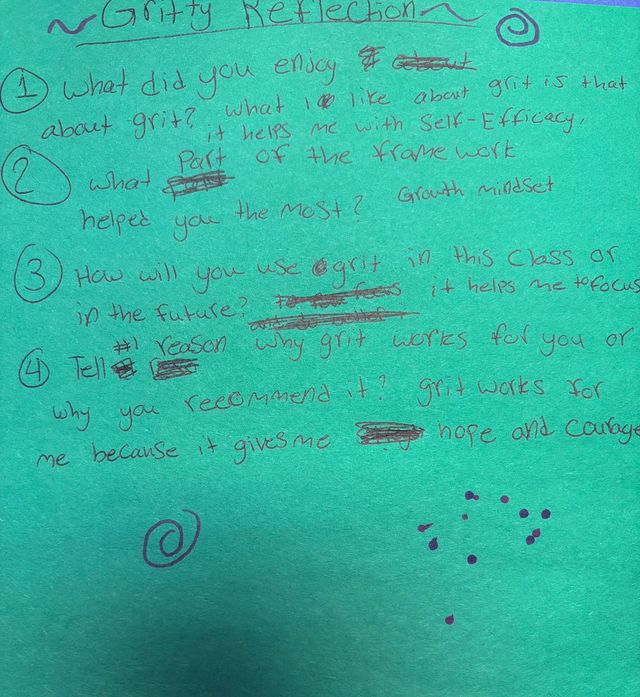 ~ Gritty Reflection ~
① What did you enjoy
about grit? What I like about grit is that
it helps me with Self-Efficacy.
② What Part of the framework
helped you the most? Growth mindset
③ How will you use grit in this class or
in the future? it helps me to focus
④ Tell #1 reason why grit works for you or
why you recommend it? grit works for
me because it gives me hope and courage